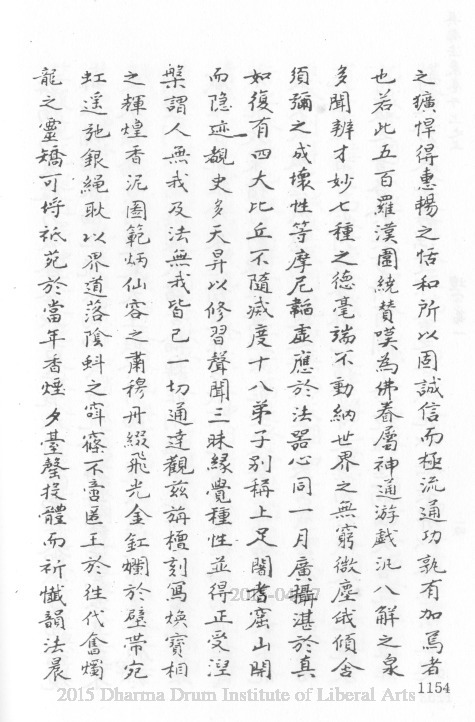 之獷悍得惠暢之恬和所以固誠信而極流通功孰有加焉者
也若此五百羅漢圍繞贊嘆為佛眷屬神通游戲汎八解之泉
多聞辨才妙七種之德毫端不動納世界之無窮微塵俄傾含
須彌之成壞性等摩尼韜虛應於法器心同一月廣攝湛於真
如復有四大比丘不隨滅度十八弟子別稱上足闍耆窟山開
而隐迹覩史多天昇以修習聲聞三昧緣覺種性並得正受湼
槃謂人無我及法無我皆已一切通達觀茲旃檀刻寫煥寶相
之輝煌香泥圖範炳仙容之肅穆丹綴飛光金釭爛於壁帶宛
虹遥弛銀繩耿以界道落陰蚪之窂窱不啻匿王於徃代奮燭
龍之靈矯可埒祇苑於當年香煙夕臺磬投體而祈懺韻法晨
1154
2015 Dharma Drum Institute of Liberal Arts